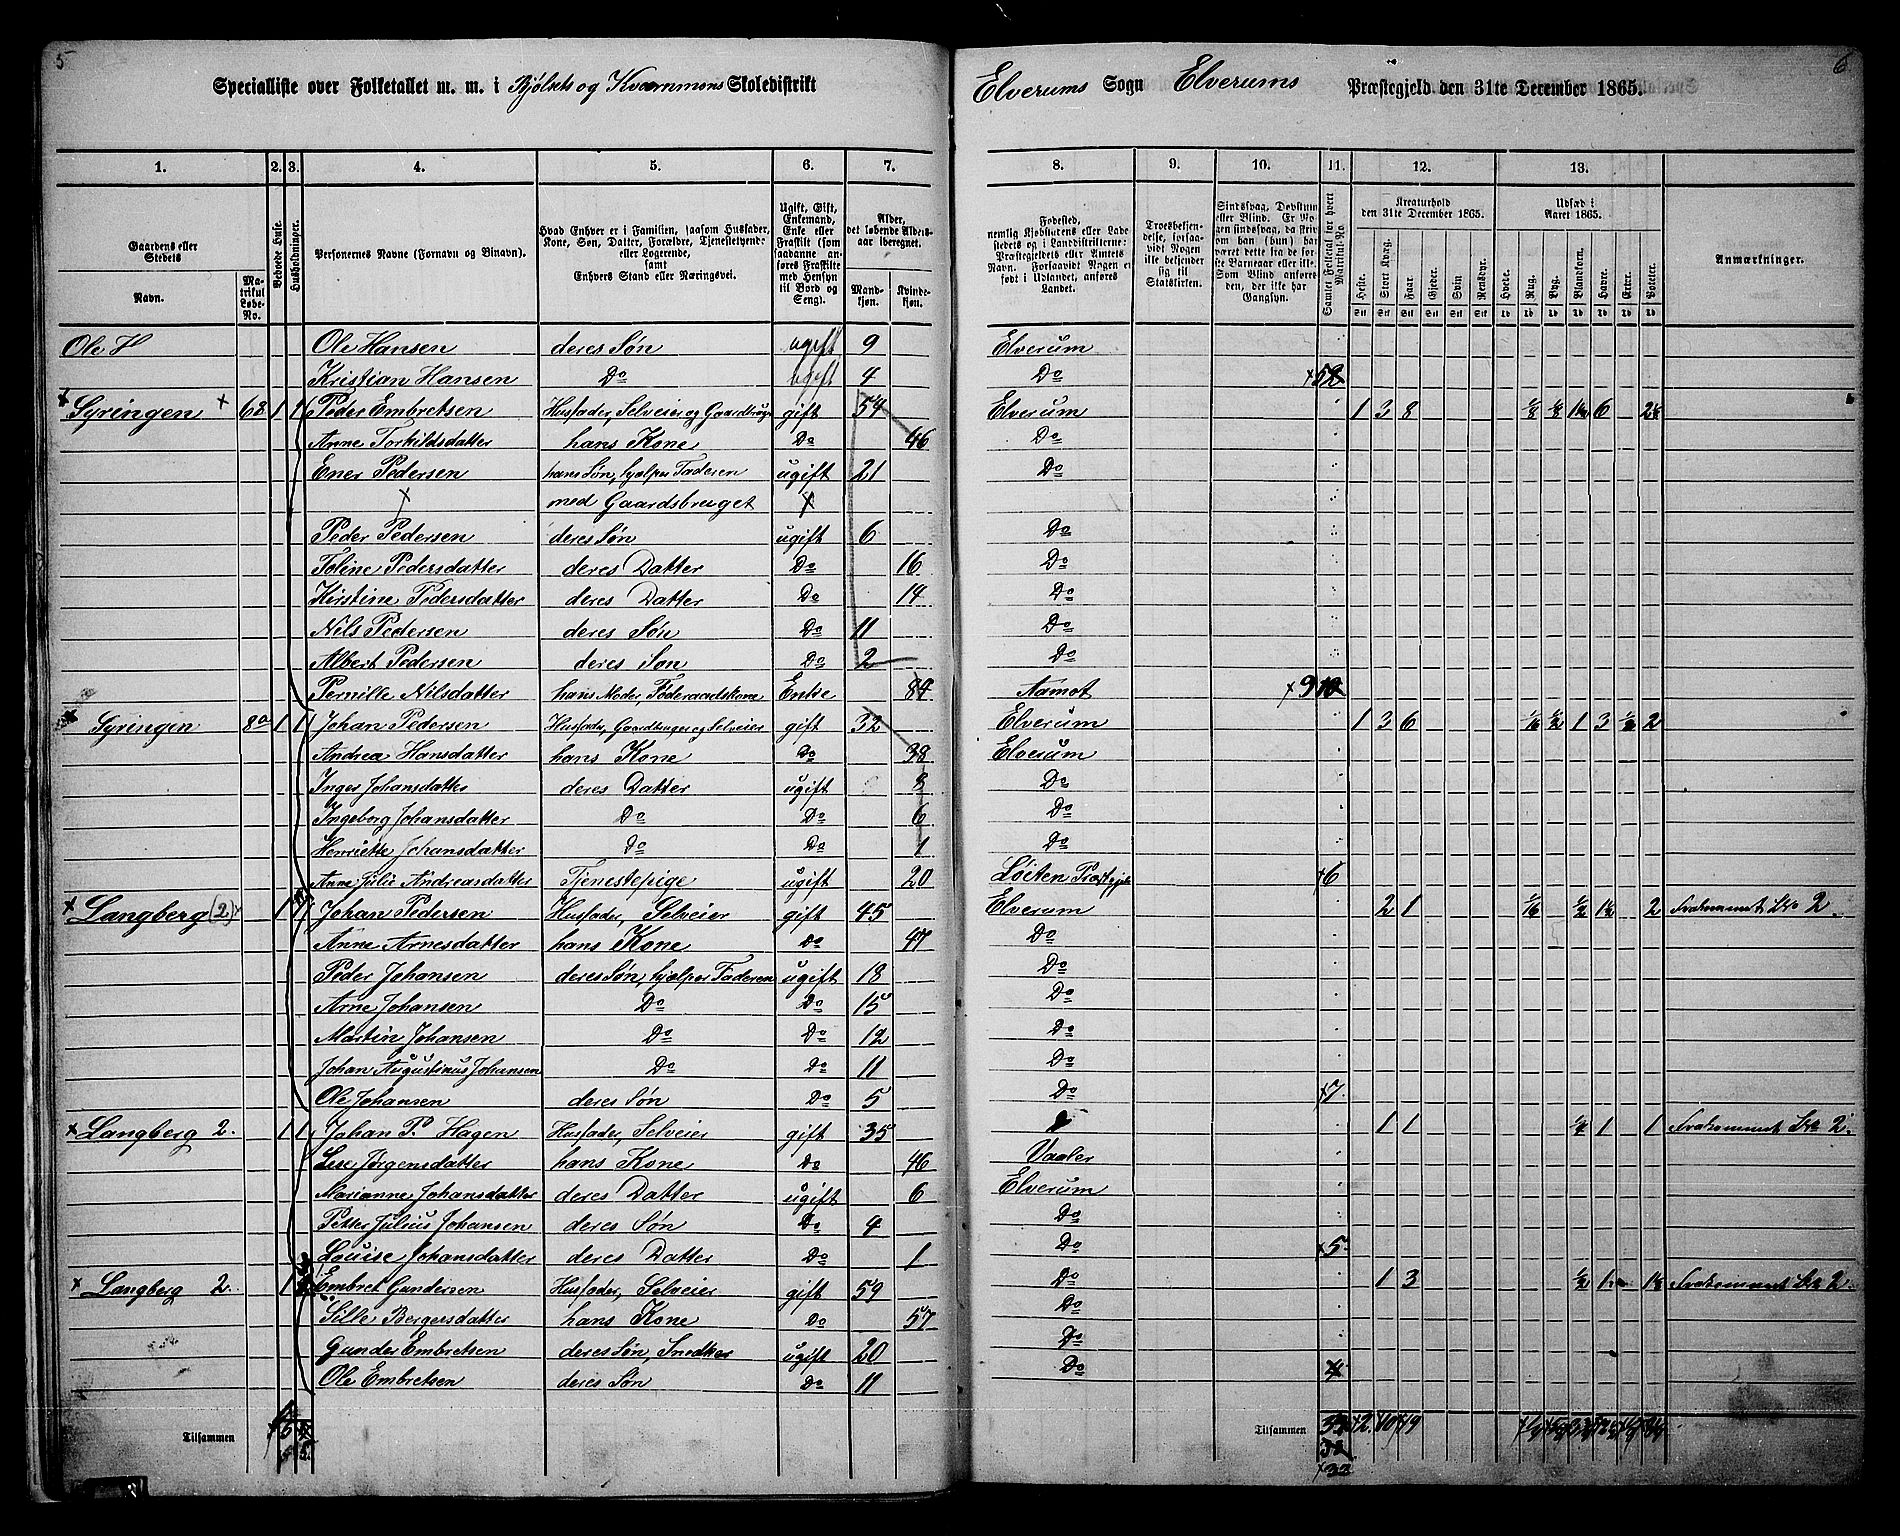 5
Specialliste over Folketallet m. m. i Bjølsets og Kvammens Skoledistrikt
Elverums Sogn Elverums Præstegjeld den 31te December 1865.
6
1. 2. 3. 4. 5. 6. 7. 8. 9. 10. 11. 12. 13.
Gaardens eller Stedets Navn.
Matrikul Løbe-No.
Beboede Huse.
Husholdninger.
Personernes Navne (Fornavn og Binavn).
Hvad Enhver er i Familien, saasom Husfader, Kone, Søn, Datter, Forældre, Tjenestetyende eller Logerende, samt Enhvers Stand eller Næringsvei.
Ugift, Gift, Enkemand, Enke eller Fraskilt (som saadanne anføres Fraskilte med Hensyn til Bord og Seng).
Alder, det løbende Aldersaar iberegnet.
Mandkjøn. Kvindekjøn.
Fødested, nemlig Kjøbstadens eller Ladestedets og i Landdistrikterne: Præstegjeldets eller Amtets Navn. Forsaavidt Nogen er født i Udlandet, anføres Landet.
Troesbekjendelse, forsaavidt Nogen ikke bekjender sig til Statskirken.
Sindssvag, Døvstum eller Blind. Er Nogen sindssvag, da skrives om han (hun) har været dette fra de spæde Barneaar eller ikke. Som Blind anføres den, der ikke har Gangsyn.
Samlet Folketal for hvert Matrikul-No.
Kreaturhold den 31te December 1865.
Heste. Stort Kvæg. Faar. Gjeder. Svin. Rensdyr.
Udsæd i Aaret 1865.
Hvede. Rug. Byg. Blandkorn. Havre. Erter. Poteter.
Anmærkninger.
Ole H Ole Hansen deres Søn ugift 9 Elverum
Kristian Hansen Do ugift 4 Do
Syringen 1 1 Peder Embretsen Husfader, Selveier og Gaardbruger gift 54 Elverum 1 3 8 1/8 1/8 6
Anne Torkildsdatter hans Kone Do 46 Do
Ener Pedersen hans Søn, hjelper Faderen ugift 21 Do
med Gaardsbruget
Peder Pedersen deres Søn ugift 6 Do
Toline Pedersdatter deres Datter Do 16 Do
Kirstine Pedersdatter deres Datter Do 14 Do
Nils Pedersen deres Søn Do 11 Do
Albert Pedersen deres Søn Do 2 Do
Pernille Nilsdatter hans Moder, Føderaadskone Enke 84 Aamot
Syringen 8a 1 1 Johan Pedersen Husfader, Gaardbruger og Selveier gift 32 Elverum 1 3 6 1/16 1/2 1 3 1/2 2
Andrea Hansdatter hans Kone Do 38 Elverum
Inger Johansdatter deres Datter ugift 8 Do
Ingeborg Johansdatter Do Do 6 Do
Henriette Johansdatter Do Do 1 Do
Anne Julie Andreasdatter Tjenestepige ugift 20 Løiten Præstegjeld 6
Langberg (2) 1 1 Johan Pedersen Husfader, Selveier gift 45 Elverum 2 1 1/16 1/2 1 1/2 2 Frakommet 2
Anne Arnesdatter hans Kone Do 47 Do
Peder Johansen deres Søn, hjelper Faderen ugift 18 Do
Arne Johansen Do Do 15 Do
Martin Johansen Do Do 12 Do
Johan Augustinus Johansen Do Do 11 Do
Ole Johansen deres Søn Do 5 Do 7
Langberg 2. 1 1 Johan P. Hagen Husfader, Selveier gift 35 1 1 1/2 1 1 Frakommet 2.
Lise Jørgensdatter hans Kone Do 46 Vaaler
Marianne Johansdatter deres Datter ugift 6 Elverum
Petter Julius Johansen deres Søn Do 4 Do
Louise Johansdatter deres Datter Do 1 Do 5
Langberg 2. 1 Embret Gundersen Husfader, Selveier gift 59 Do 1 3 1/2 1 Frakommet 2.
Sille Bergersdatter hans Kone Do 57 Do
Gunder Embretsen deres Søn, Snedker ugift 20 Do
Ole Embretsen deres Søn Do 11 Do 4
Tilsammen
Tilsammen